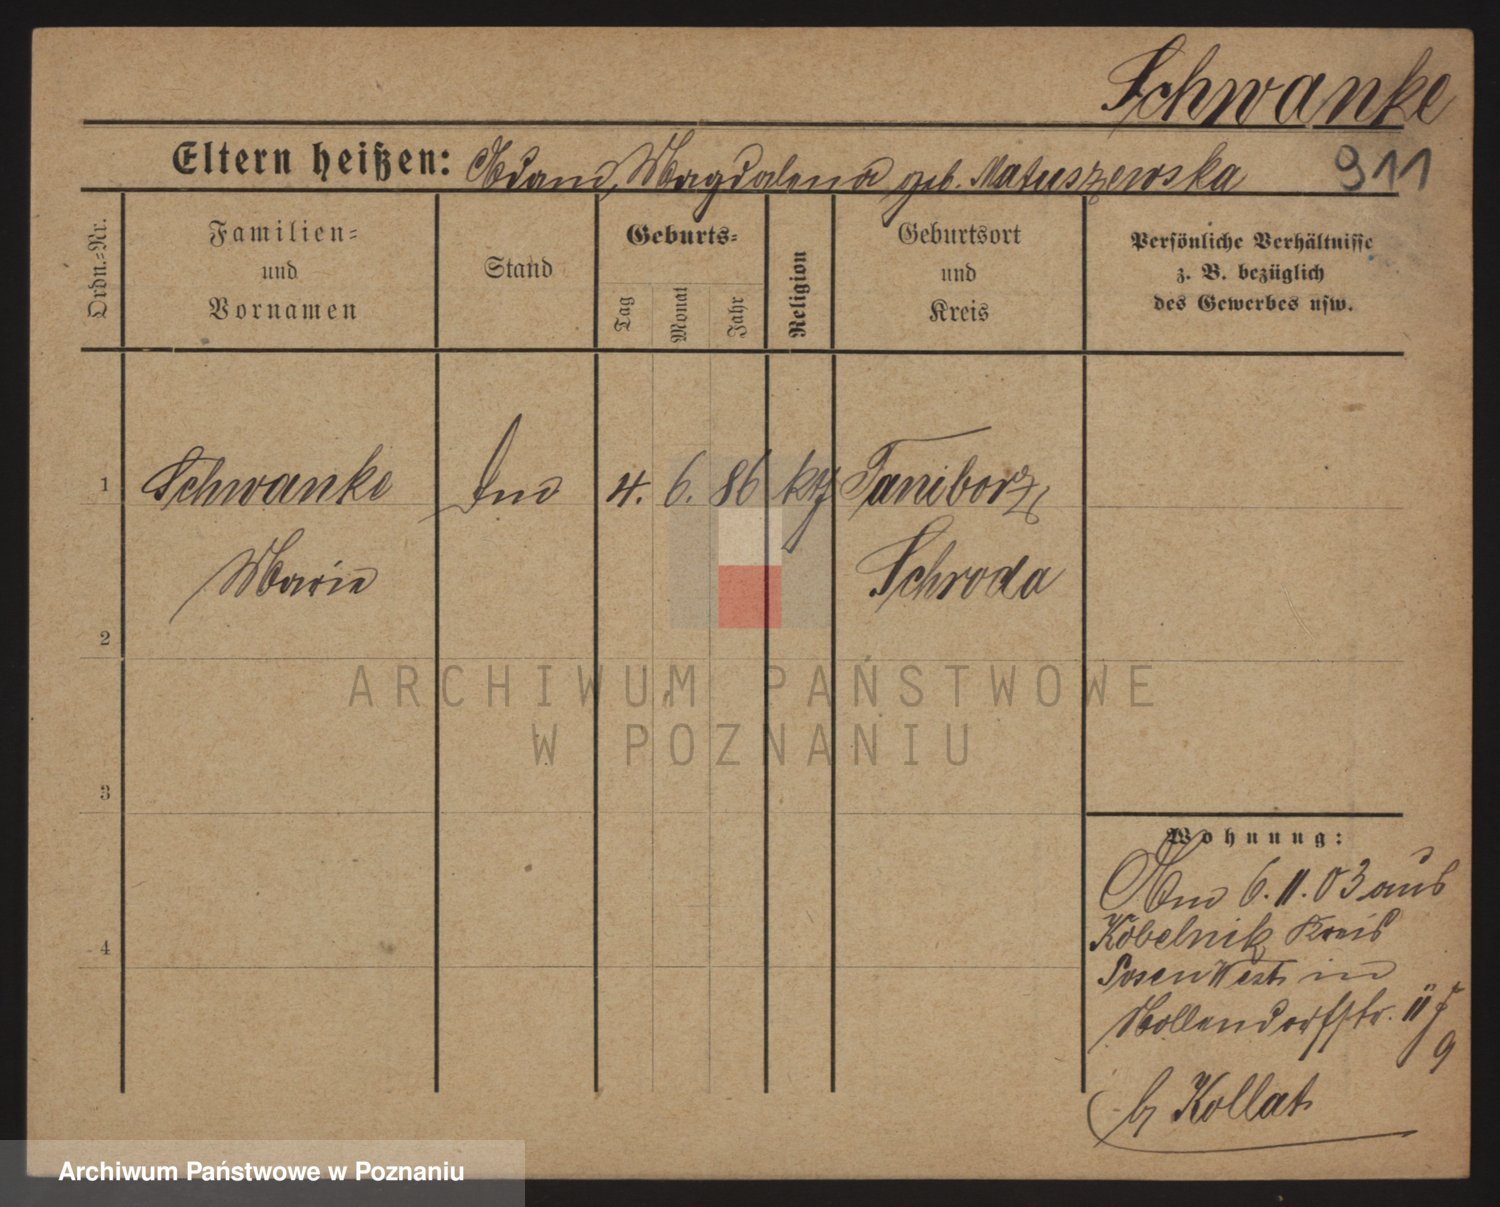 Schwanke
Eltern heißen: Adam, Magdalena geb. Matuszewska 911
Ordn.-Nr.
Familien-
und
Vornamen
Stand
Geburts-
Tag
Monat
Jahr
Religion
Geburtsort
und
Kreis
Persönliche Verhältnisse
z. B. bezüglich
des Gewerbes usw.
1 Schwanke 4. 6. 86 kth Taniborz
Marie Schroda
2
ARCHIWUM PAŃSTWOWE
W POZNANIU
3
Wohnung:
Am 6.11.03 aus
4 Kobelnik Kreis
Posen West in
Nollendorfstr. 11
9
b/ Kollat
Archiwum Państwowe w Poznaniu